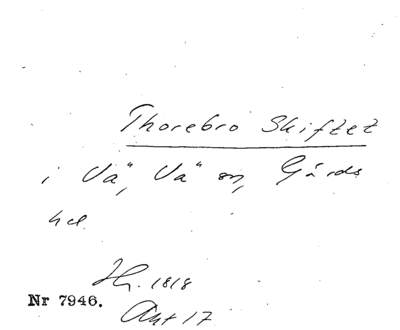 Thorebro Skiftet
i Vä, Vä sn, Gärds
hd.
Hr. 1818
Nr 7946.
Akt 17